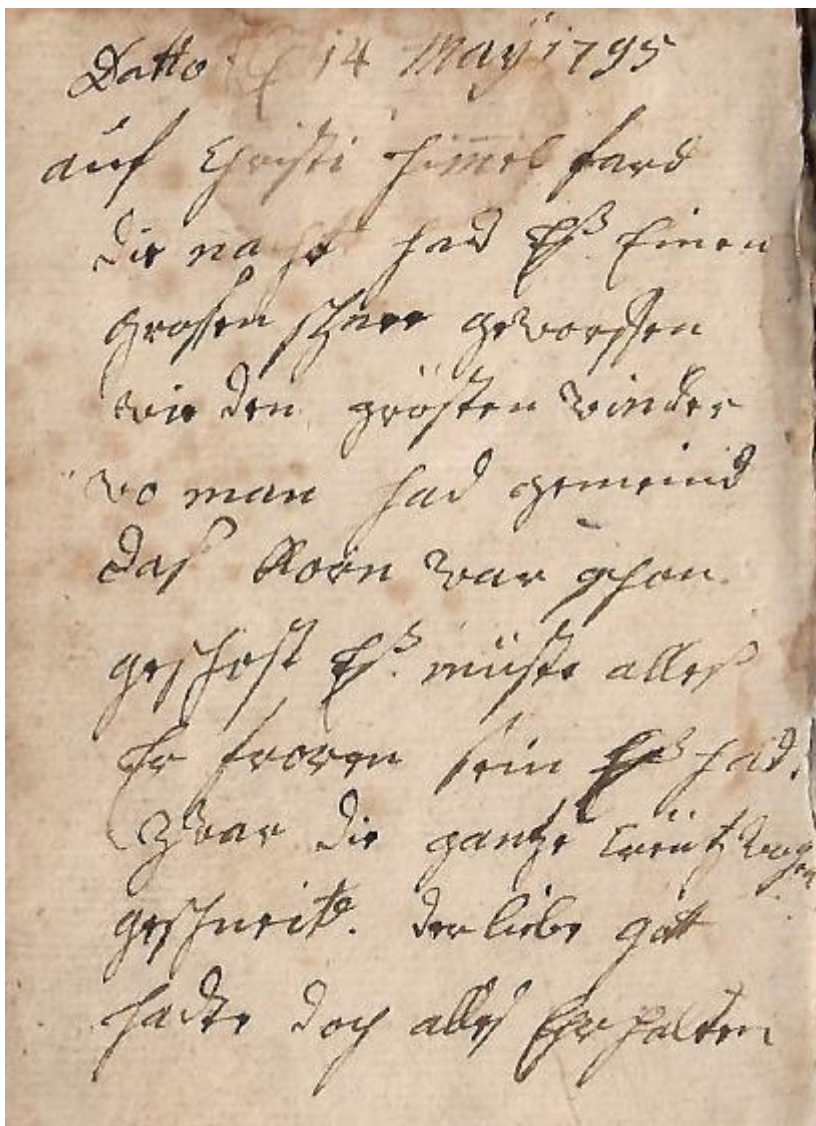 Datto 14 Maÿ 1795
auf Christi Himmel fard
die nacht had Eß Einen
grossen schnee geworffen
wie den grösten winder
wo man had gemeind
daß Korn war schon
geschost Eß müste alles
Er froren sein Eß had
zwar die gantze creütz wochen
geschneit. der liebe gott
hadte doch alles Erhalten